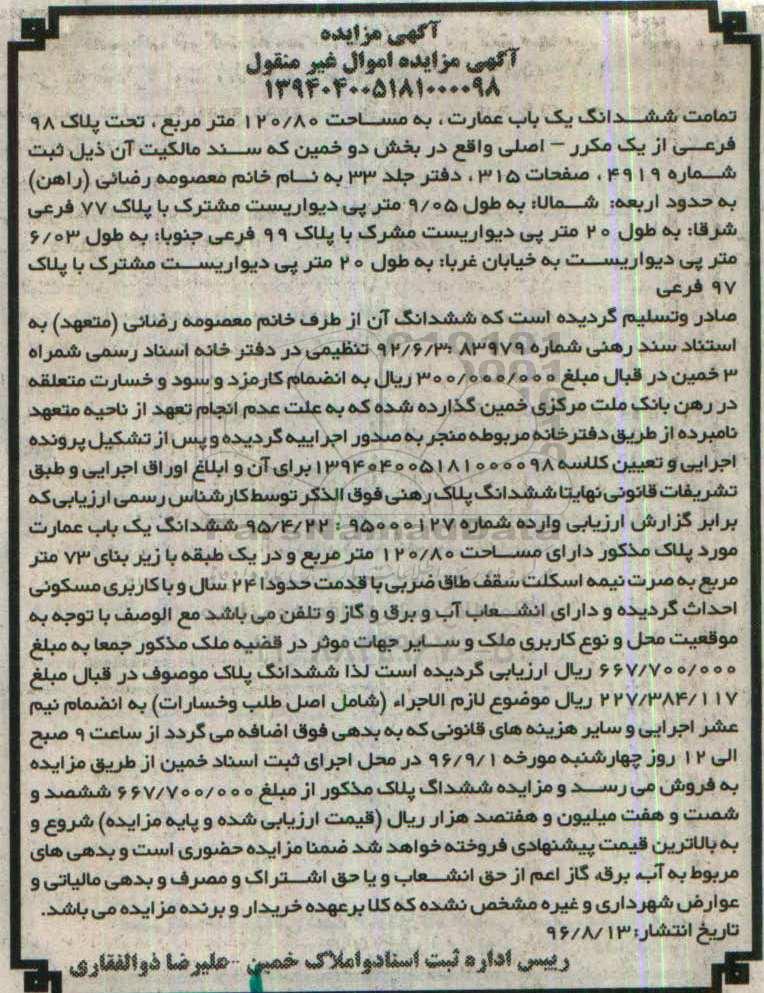 آگهی مزایده
آگهی مزایده اموال غیر منقول
۱۳۹۴۰۴۰۰۵۱۸۱۰۰۰۰۹۸
تمامت ششدانگ یک باب عمارت ، به مساحت ۱۲۰/۸۰ متر مربع ، تحت پلاک ۹۸
فرعی از یک مکرر – اصلی واقع در بخش دو خمین که سند مالکیت آن ذیل ثبت
شماره ۴۹۱۹ ، صفحات ۳۱۵ ، دفتر جلد ۳۳ به نام خانم معصومه رضائی (راهن)
به حدود اربعه: شمالا: به طول ۹/۰۵ متر پی دیواریست مشترک با پلاک ۷۷ فرعی
شرقا: به طول ۲۰ متر پی دیواریست مشرک با پلاک ۹۹ فرعی جنوبا: به طول ۶/۰۳
متر پی دیواریست به خیابان غربا: به طول ۲۰ متر پی دیواریست مشترک با پلاک
۹۷ فرعی
صادر وتسلیم گردیده است که ششدانگ آن از طرف خانم معصومه رضائی (متعهد) به
استناد سند رهنی شماره ۸۳۹۷۹ :۹۲/۶/۳ تنظیمی در دفتر خانه اسناد رسمی شمراه
۳ خمین در قبال مبلغ ۳۰۰/۰۰۰/۰۰۰ ریال به انضمام کارمزد و سود و خسارت متعلقه
در رهن بانک ملت مرکزی خمین گذارده شده که به علت عدم انجام تعهد از ناحیه متعهد
نامبرده از طریق دفترخانه مربوطه منجر به صدور اجراییه گردیده و پس از تشکیل پرونده
اجرایی و تعیین کلاسه ۱۳۹۴۰۴۰۰۵۱۸۱۰۰۰۰۹۸ برای آن و ابلاغ اوراق اجرایی و طبق
تشریفات قانونی نهایتا ششدانگ پلاک رهنی فوق الذکر توسط کارشناس رسمی ارزیابی که
برابر گزارش ارزیابی وارده شماره ۹۵۰۰۰۱۲۷ : ۹۵/۴/۲۲ ششدانگ یک باب عمارت
مورد پلاک مذکور دارای مساحت ۱۲۰/۸۰ متر مربع و در یک طبقه با زیر بنای ۷۳ متر
مربع به صرت نیمه اسکلت سقف طاق ضربی با قدمت حدودا ۲۴ سال و با کاربری مسکونی
احداث گردیده و دارای انشعاب آب و برق و گاز و تلفن می باشد مع الوصف با توجه به
موقعیت محل و نوع کاربری ملک و سایر جهات موثر در قضیه ملک مذکور جمعا به مبلغ
۶۶۷/۷۰۰/۰۰۰ ریال ارزیابی گردیده است لذا ششدانگ پلاک موصوف در قبال مبلغ
۲۲۷/۳۸۴/۱۱۷ ریال موضوع لازم الاجراء (شامل اصل طلب وخسارات) به انضمام نیم
عشر اجرایی و سایر هزینه های قانونی که به بدهی فوق اضافه می گردد از ساعت ۹ صبح
الی ۱۲ روز چهارشنبه مورخه ۹۶/۹/۱ در محل اجرای ثبت اسناد خمین از طریق مزایده
به فروش می رسد و مزایده ششداگ پلاک مذکور از مبلغ ۶۶۷/۷۰۰/۰۰۰ ششصد و
شصت و هفت میلیون و هفتصد هزار ریال (قیمت ارزیابی شده و پایه مزایده) شروع و
به بالاترین قیمت پیشنهادی فروخته خواهد شد ضمنا مزایده حضوری است و بدهی های
مربوط به آب، برق، گاز اعم از حق انشعاب و یا حق اشتراک و مصرف و بدهی مالیاتی و
عوارض شهرداری و غیره مشخص نشده که کلا برعهده خریدار و برنده مزایده می باشد.
تاریخ انتشار: ۹۶/۸/۱۳
رییس اداره ثبت اسنادواملاک خمین –علیرضا ذوالفقاری